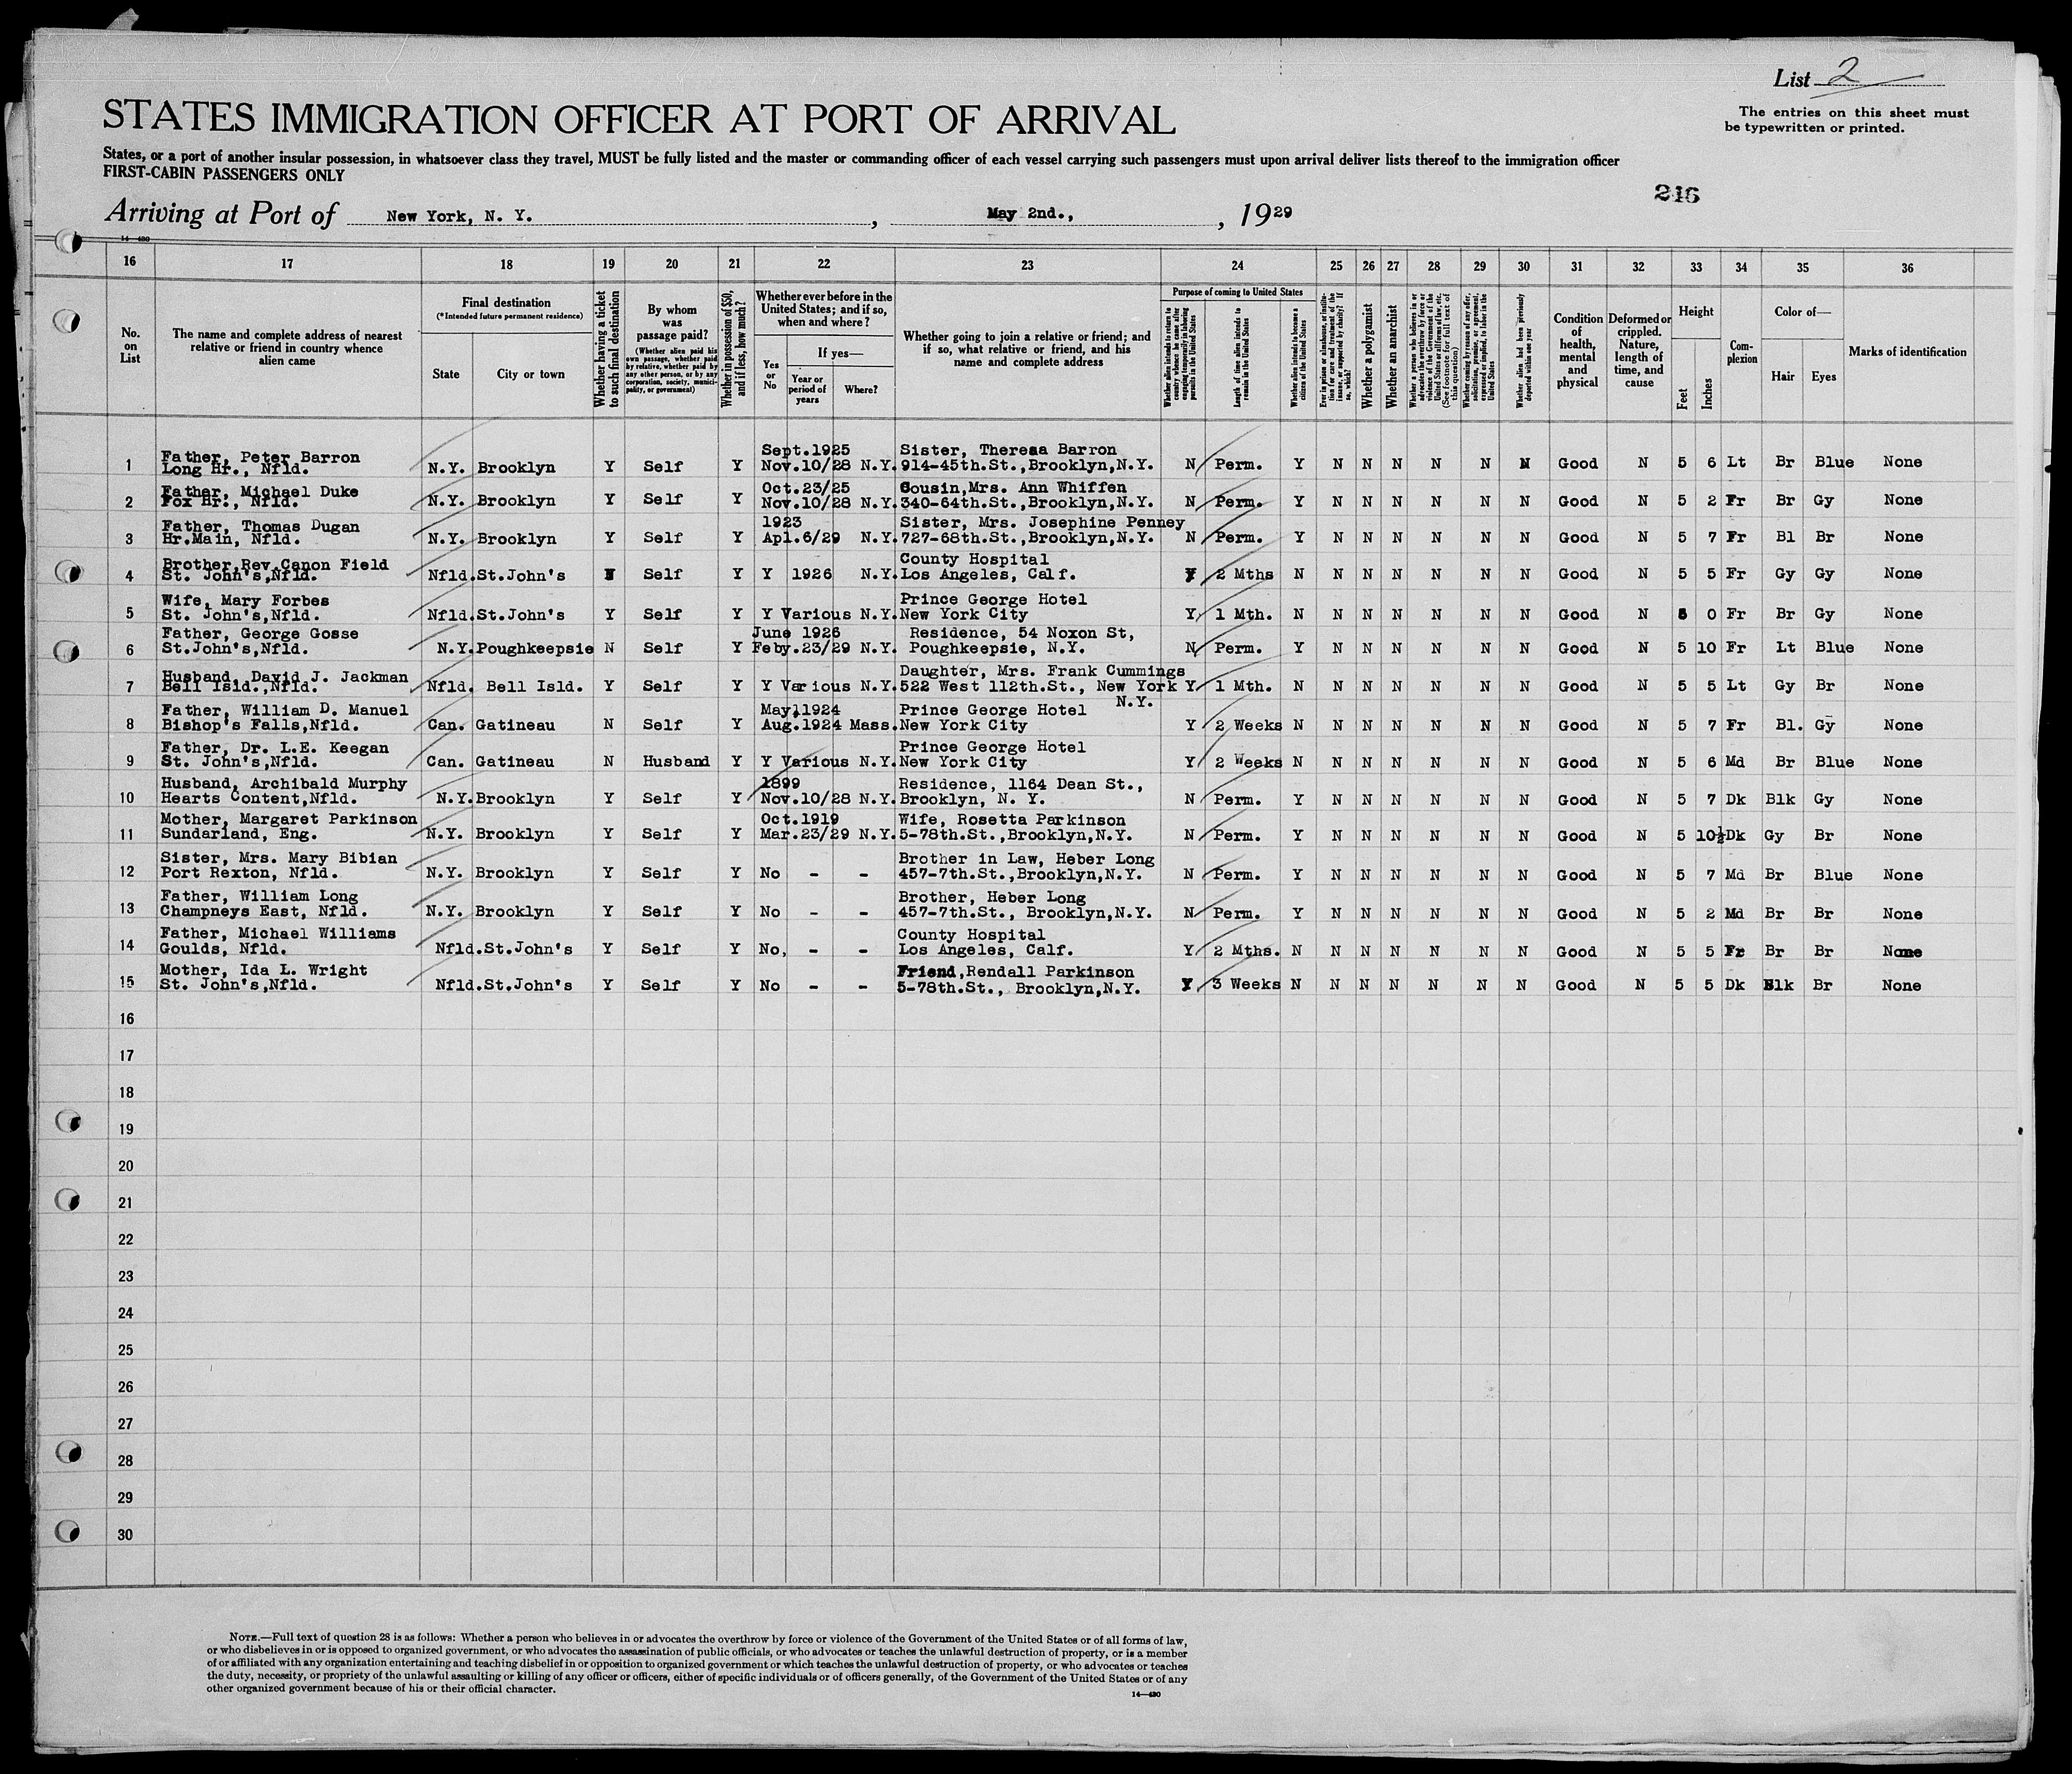 List 2
The entries on this sheet must
be typewritten or printed.
STATES IMMIGRATION OFFICER AT PORT OF ARRIVAL
States, or a port of another insular possession, in whatsoever class they travel, MUST be fully listed and the master or commanding officer of each vessel carrying such passengers must upon arrival deliver lists thereof to the immigration officer
FIRST-CABIN PASSENGERS ONLY
216
Arriving at Port of New York, N. Y. , May 2nd., , 1929
14-430
16 17 18 19 20 21 22 23 24 25 26 27 28 29 30 31 32 33 34 35 36
No. on List
The name and complete address of nearest relative or friend in country whence alien came
Final destination
(*Intended future permanent residence)
State City or town
Whether having a ticket to such final destination
By whom was passage paid?
(Whether alien paid his own passage, whether paid by relative, whether paid by any other person, or by any corporation, society, municipality, or government)
Whether in possession of $50, and if less, how much?
Whether ever before in the United States; and if so, when and where?
Yes or No
If yes—
Year or period of years
Where?
Whether going to join a relative or friend; and if so, what relative or friend, and his name and complete address
Purpose of coming to United States
Whether alien intends to return to country whence he came after engaging temporarily in laboring pursuits in the United States
Length of time alien intends to remain in the United States
Whether alien intends to become a citizen of the United States
Ever in prison or almshouse, or institution for care and treatment of the insane, or supported by charity? If so, which?
Whether a polygamist
Whether an anarchist
Whether a person who believes in or advocates the overthrow by force or violence of the Government of the United States or all forms of law, etc. (See footnote for full text of this question)
Whether coming by reason of any offer, solicitation, promise, or agreement, expressed or implied, to labor in the United States
Whether alien had been previously deported within one year
Condition of health, mental and physical
Deformed or crippled. Nature, length of time, and cause
Height
Feet Inches
Complexion
Color of—
Hair Eyes
Marks of identification
1 Father, Peter Barron Long Hr., Nfld. N.Y. Brooklyn Y Self Y Sept.1925 Nov.10/28 N.Y. Sister, Theresa Barron 914-45th.St.,Brooklyn,N.Y. N Perm. Y N N N N N N Good N 5 6 Lt Br Blue None
2 Father, Michael Duke Fox Hr., Nfld. N.Y. Brooklyn Y Self Y Oct.23/25 Nov.10/28 N.Y. Cousin,Mrs. Ann Whiffen 340-64th.St.,Brooklyn,N.Y. N Perm. Y N N N N N N Good N 5 2 Fr Br Gy None
3 Father, Thomas Dugan Hr.Main, Nfld. N.Y. Brooklyn Y Self Y 1923 Apl.6/29 N.Y. Sister, Mrs. Josephine Penney 727-68th.St.,Brooklyn,N.Y. N Perm. Y N N N N N N Good N 5 7 Fr Bl Br None
4 Brother,Rev.Canon Field St. John's,Nfld. Nfld. St.John's Self Y Y 1926 N.Y. County Hospital Los Angeles, Calf. Y 2 Mths N N N N N N N Good N 5 5 Fr Gy Gy None
5 Wife, Mary Forbes St. John's,Nfld. Nfld. St.John's Y Self Y Y Various N.Y. Prince George Hotel New York City Y 1 Mth. N N N N N N N Good N 5 0 Fr Br Gy None
6 Father, George Gosse St.John's,Nfld. N.Y. Poughkeepsie N Self Y June 1926 Feby.23/29 N.Y. Residence, 54 Noxon St, Poughkeepsie, N.Y. N Perm. Y N N N N N N Good N 5 10 Fr Lt Blue None
7 Husband, David J. Jackman Bell Isld.,Nfld. Nfld. Bell Isld. Y Self Y Y Various N.Y. Daughter, Mrs. Frank Cummings 522 West 112th.St., New York N.Y. Y 1 Mth. N N N N N N N Good N 5 5 Lt Gy Br None
8 Father, William D. Manuel Bishop's Falls,Nfld. Can. Gatineau N Self Y May,1924 Aug.1924 Mass. Prince George Hotel New York City Y 2 Weeks N N N N N N N Good N 5 7 Fr Bl. Gy None
9 Father, Dr. L.E. Keegan St. John's,Nfld. Can. Gatineau N Husband Y Y Various N.Y. Prince George Hotel New York City Y 2 Weeks N N N N N N N Good N 5 6 Md Br Blue None
10 Husband, Archibald Murphy Hearts Content,Nfld. N.Y. Brooklyn Y Self Y 1899 Nov.10/28 N.Y. Residence, 1164 Dean St., Brooklyn, N. Y. N Perm. Y N N N N N N Good N 5 7 Dk Blk Gy None
11 Mother, Margaret Parkinson Sundarland, Eng. N.Y. Brooklyn Y Self Y Oct.1919 Mar.23/29 N.Y. Wife, Rosetta Parkinson 5-78th.St.,Brooklyn,N.Y. N Perm. Y N N N N N N Good N 5 10½ Dk Gy Br None
12 Sister, Mrs. Mary Bibian Port Rexton, Nfld. N.Y. Brooklyn Y Self Y No - - Brother in Law, Heber Long 457-7th.St.,Brooklyn,N.Y. N Perm. Y N N N N N N Good N 5 7 Md Br Blue None
13 Father, William Long Champneys East, Nfld. N.Y. Brooklyn Y Self Y No - - Brother, Heber Long 457-7th.St., Brooklyn,N.Y. N Perm. Y N N N N N N Good N 5 2 Md Br Br None
14 Father, Michael Williams Goulds, Nfld. Nfld. St.John's Y Self Y No, - - County Hospital Los Angeles, Calf. Y 2 Mths. N N N N N N N Good N 5 5 Fr Br Br None
15 Mother, Ida L. Wright St. John's,Nfld. Nfld. St.John's Y Self Y No - - Friend,Rendall Parkinson 5-78th.St., Brooklyn,N.Y. Y 3 Weeks N N N N N N N Good N 5 5 Dk Blk Br None
16
17
18
19
20
21
22
23
24
25
26
27
28
29
30
NOTE.—Full text of question 28 is as follows: Whether a person who believes in or advocates the overthrow by force or violence of the Government of the United States or of all forms of law,
or who disbelieves in or is opposed to organized government, or who advocates the assassination of public officials, or who advocates or teaches the unlawful destruction of property, or is a member
of or affiliated with any organization entertaining and teaching disbelief in or opposition to organized government or which teaches the unlawful destruction of property, or who advocates or teaches
the duty, necessity, or propriety of the unlawful assaulting or killing of any officer or officers, either of specific individuals or of officers generally, of the Government of the United States or of any
other organized government because of his or their official character.
14—430